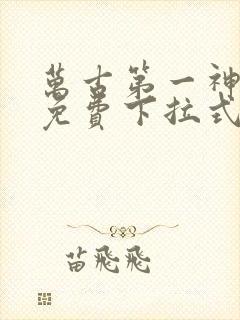 萬古第一神
免費下拉式
苗飛飛